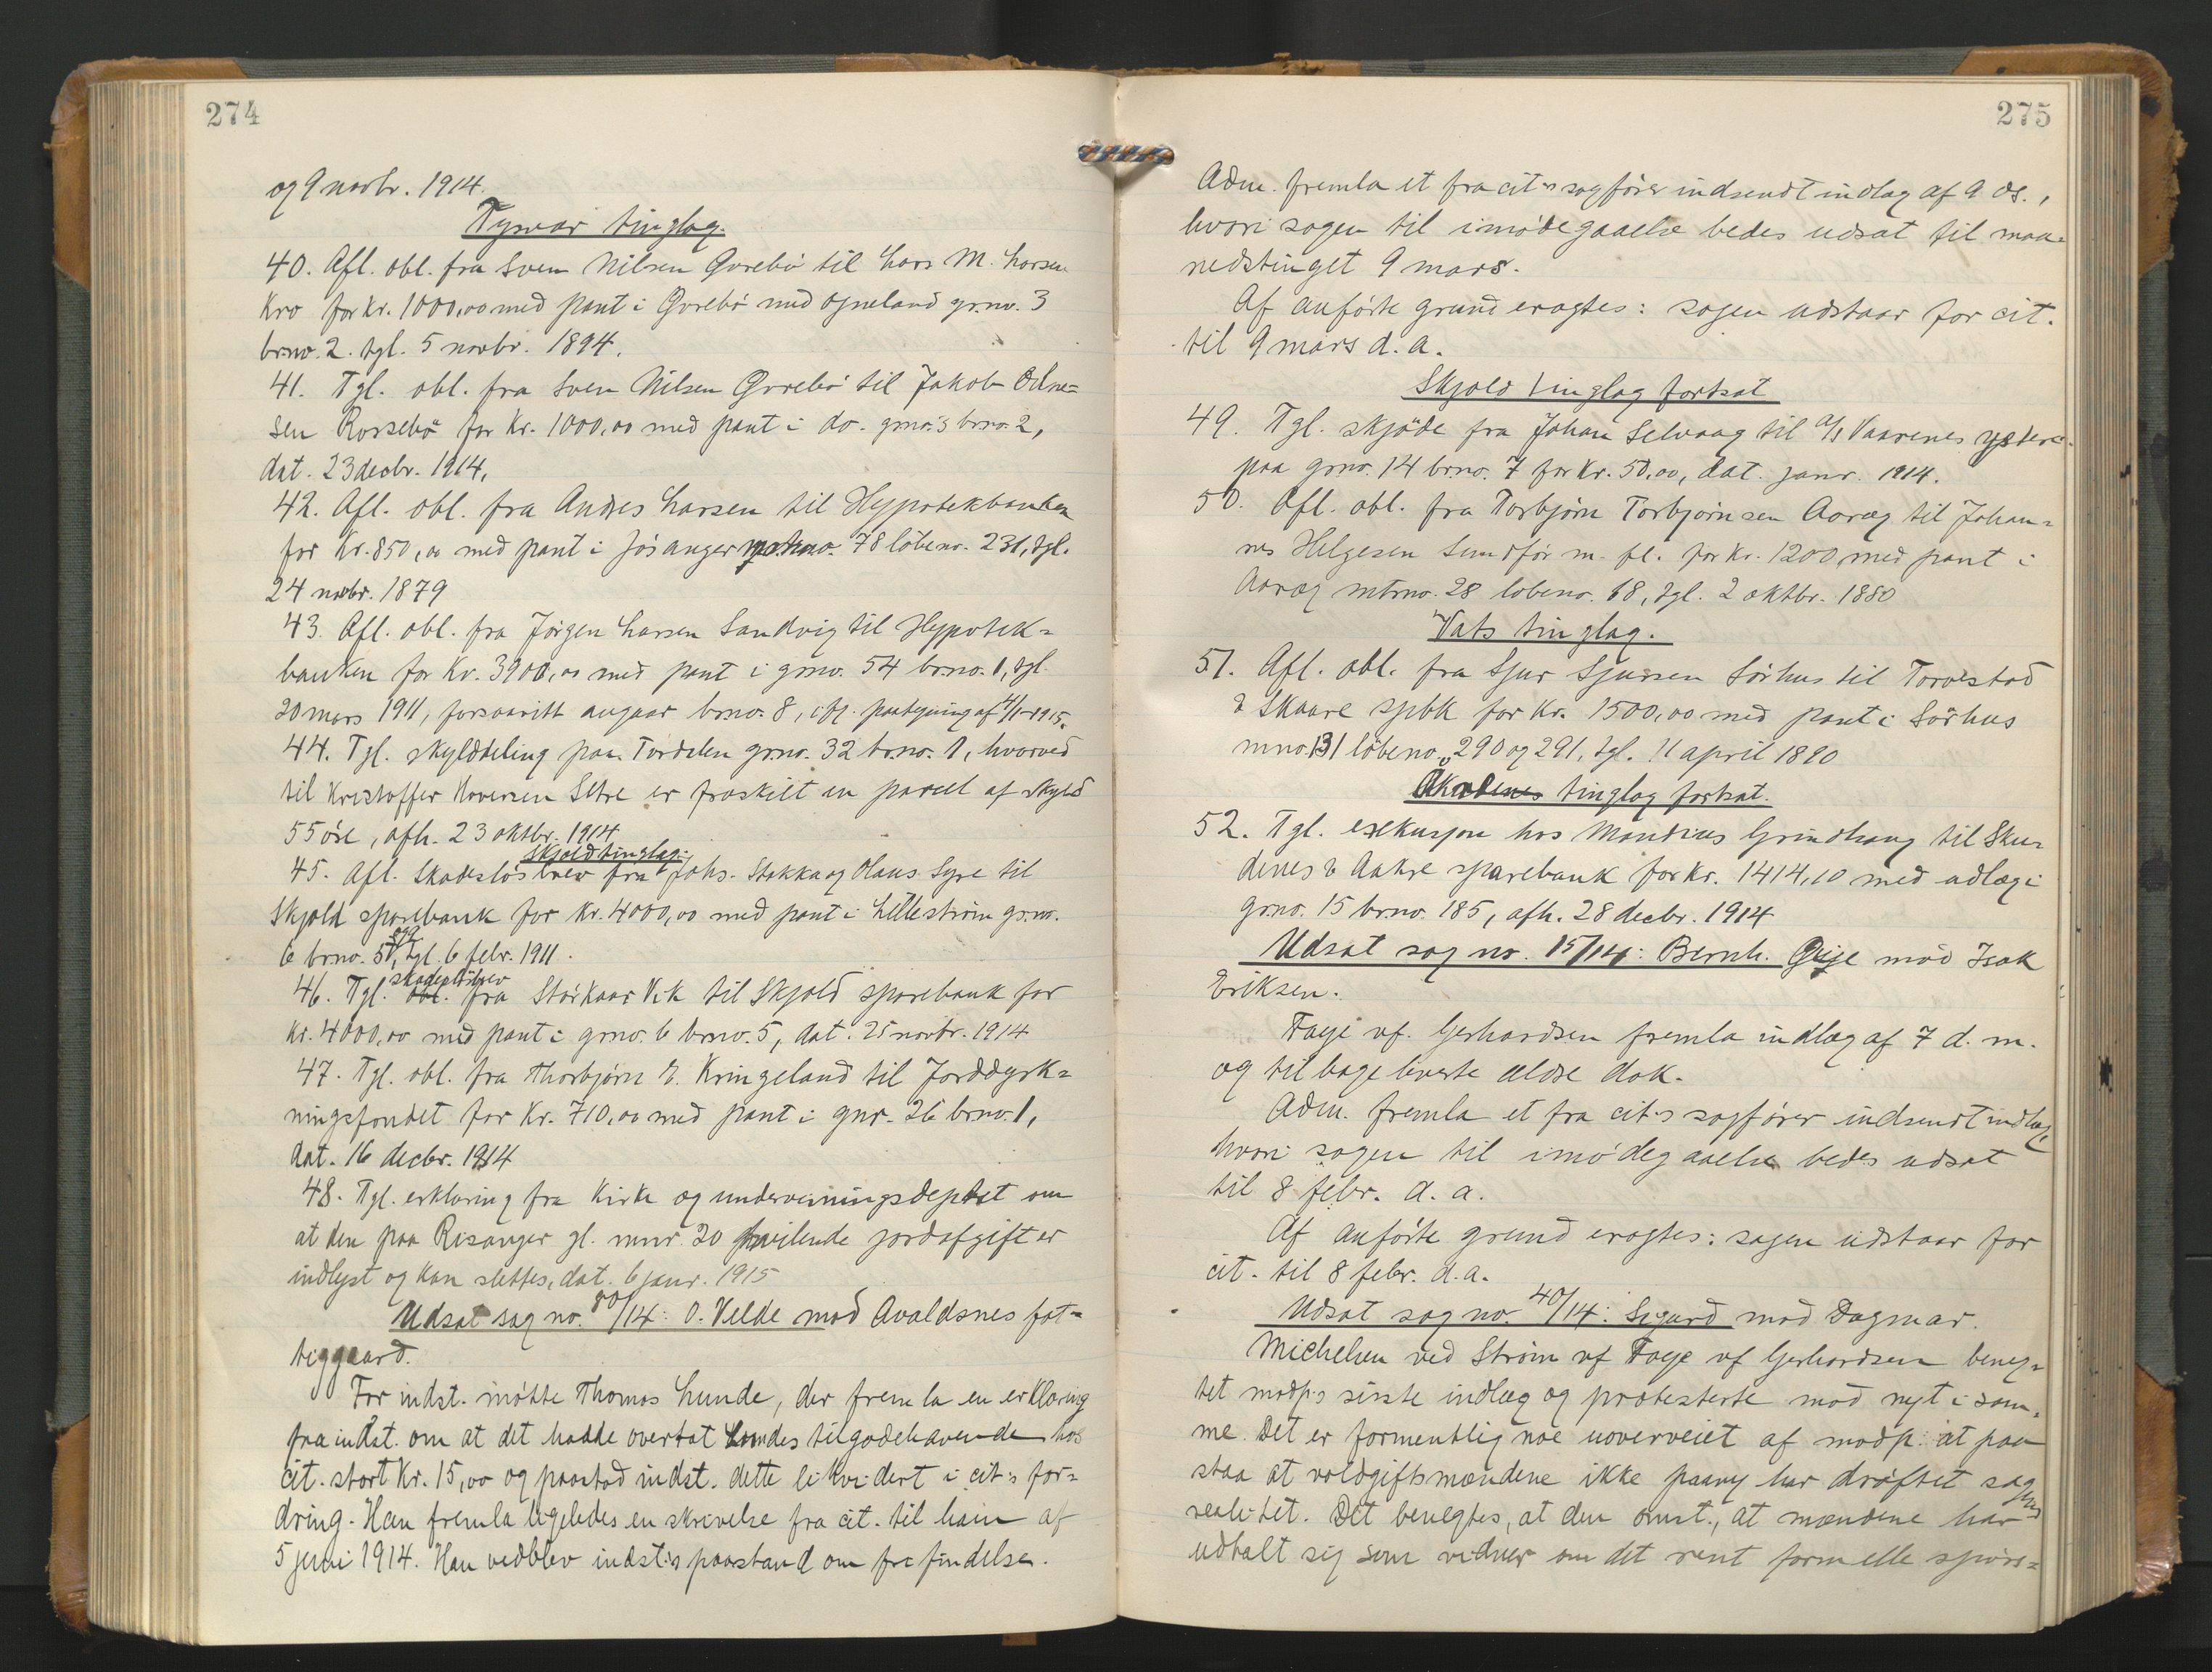 274
og 9 novbr. 1914.
Tysvær tinglag.
40. Afl. obl. fra Sven Nilsen Qvrebö til Lars M. Larsen
Kro for kr. 1000,00 med pant i Qvrebö med Ogneland grno. 3
brno. 2. tgl. 5 novbr. 1894.
41. Tgl. obl. fra Sven Nilsen Qvrebö til Jakob Odne=
sen Rossebö for kr. 1000,00 med pant i do. grno. 3 brno. 2,
dat. 23 decbr. 1914.
42. Afl. obl. fra Andres Larsen til Hypotekbanken
for kr. 850,00 med pant i Jösanger 78 löbeno. 231, tgl.
24 novbr. 1879
43. Afl. obl. fra Jörgen Larsen Sandvig til Hypotek=
banken for kr. 3900,00 med pant i grno. 54 brno. 1, tgl.
20 mars 1911, forsaavitt angaar brno. 8, ifg. paategning af 4/1-1915.
44. Tgl. skylddeling paa Tordalen grno. 32 brno. 1, hvorved
til Kristoffer Hoversen Sltre er fraskilt en parcel af skyld
55 öre, afh. 23 oktbr. 1914
Skjold tinglag.
45. Afl. Skadeslösbrev fra Johs. Stakka og Olaus Syre til
Skjold sparebank for kr. 4000,00 med pant i Lilleström grno.
6 brno. 5, tgl. 6 febr. 1911.
46. Tgl. skadeslösbrev fra Storkaas Vik til Skjold sparebank for
kr. 4000,00 med pant i grno. 6 brno. 5, dat. 25 novbr. 1914
47. Tgl. obl. fra Thorbjörn E. Kringeland til Jorddyrk=
ningsfondet for kr. 710,00 med pant i gnr. 26 brno. 1,
dat. 16 decbr. 1914
48. Tgl. erklæring fra Kirke og undervisningsdeptet om
at den paa Risanger gl. mnr. 20 hvilende jordafgift er
indlyst og kan slettes, dat. 6 janr. 1915
Udsat sag no. 80/14: O. Velde mod Avaldsnes fat=
tiggaard.
For indst. mötte Thomas Lunde, der fremla en erklæring
fra indst. om at det hadde overtat Lundes tilgodehavende hos
cit. stort kr. 15,00 og paastod indst. dette likvidert i cit:s for=
dring. Han fremla ligeledes en skrivelse fra cit. til ham af
5 juni 1914. Han vedblev indst:s paastand om frifindelse.
275
Adm. fremla et fra cit:s sagförer indsendt indlæg af 9 ds.,
hvori sagen til imödegaaelse bedes udsat til maa=
nedstinget 9 mars.
Af anförte grund eragtes: sagen udstaar for cit.
til 9 mars d. a.
Skjold tinglag fortsat
49. Tgl. skjöde fra Johan Selvaag til A/s Vaarenes ysteri
paa grno. 14 brno. 7 for kr. 50,00, dat. janr. 1914.
50. Afl. obl. fra Torbjörn Torbjörnsen Aaræg til Johan=
nes Helgesen Sundför m. fl. for kr. 1200 med pant i
Aaræg mtrno. 28 löbeno. 68, tgl. 2 oktbr. 1880
Vats tinglag.
51. Afl. obl. fra Sjur Sjursen Sörhus til Torvestad
& Skaare spbk for kr. 1500,00 med pant i Sörhus
mno. 131 löbeno. 290 og 291, tgl. 11 april 1890
tinglag fortsat.
52. Tgl. exekusjon hos Mandius Grindhaug til Sku=
denes & Aakre sparebank for kr. 1414,10 med udlæg i
grno. 15 brno. 185, afh. 28 decbr. 1914
Udsat sag no. 15/14: Bernh. Geije mod Isak
Eriksen.
Faye vf. Gerhardsen fremla indlæg af 7 d. m.
og tilbageleverte ældre dok.
Adm. fremla et fra cit:s sagförer indsendt indlæg,
hvori sagen til imödegaaelse bedes udsat
til 8 febr. d. a.
Af anförte grund eragtes: sagen udstaar for
cit. til 8 febr. d. a.
Udsat sag no. 40/14: Sigurd mod Dagmar.
Michelsen ved Ström vf Faye vf Gerhardsen beneg=
tet modp:s sisste indlæg og protesterte mod nyt i sam=
me. Det er formentlig noe uoverveiet af modp. at paa
staa at voldgiftsmændene ikke paany har dröftet sagens
realitet. Det benegtes, at den omst., at mændene har
udtalt sig som vidner om det rent formelle spörs=